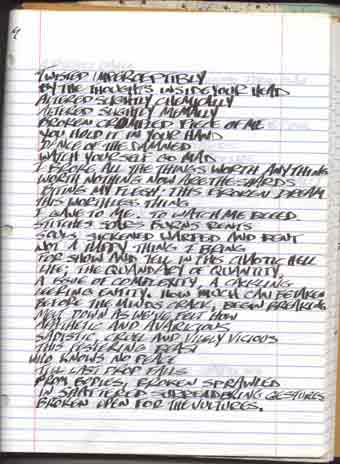 TWISTED IMPERCEPTIBLY
BY THE THOUGHTS INSIDE YOUR HEAD
ALTERED SLIGHTLY CHEMICALLY
ALTERED SLIGHTLY MENTALLY
BROKEN CRUMBLED PIECE OF ME
YOU HOLD IT IN YOUR HAND
DANCE OF THE DAMNED
WATCH YOURSELF GO MAD
I BROKE ALL THE THINGS WORTH ANYTHING
WORTH NOTHING NOW ARE THE SHARDS
BITING MY FLESH. THIS BROKEN DREAM
THIS WORTHLESS THING
I GAVE TO ME. TO WATCH ME BLEED
STITCHES SCARS BURNS RENTS
SICKLY SICKENED WARPED AND BENT
NOT A HAPPY THING I BRING
FOR SHOW AND TELL IN THIS CHAOTIC HELL
LIFE; THE QUANDARY OF QUANTITY,
A ISSUE OF COMPLEXITY, A CACKLING
JEERING ENTITY. HOW MUCH CAN BE TAKEN
BEFORE THE MINDS CRACK, BEGIN BREAKING
MELT DOWN AS WE'VE FELT HOW
APATHETIC AND AVARICIOUS
SADISTIC, CRUEL AND VILELY VICIOUS
THIS FESTERING BEAST
WHO KNOWS NO PEACE
TILL LAST DROP FALLS
FROM BODIES, BROKEN SPRAWLED
IN SHATTERED SURRENDERING GESTURES
BROKEN OPEN FOR THE VULTURES.